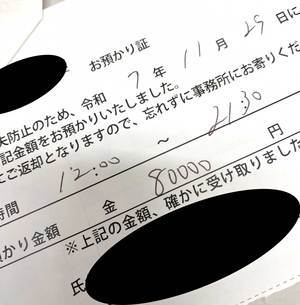 お預かり証
失防止のため、令和 7 年 11 月 29 日に
記金額をお預かりいたしました。
ご返却となりますので、忘れずに事務所にお寄りくだ
時間 12:00 ～ 21:30
預かり金額 金 80000 円
※上記の金額、確かに受け取りました
氏